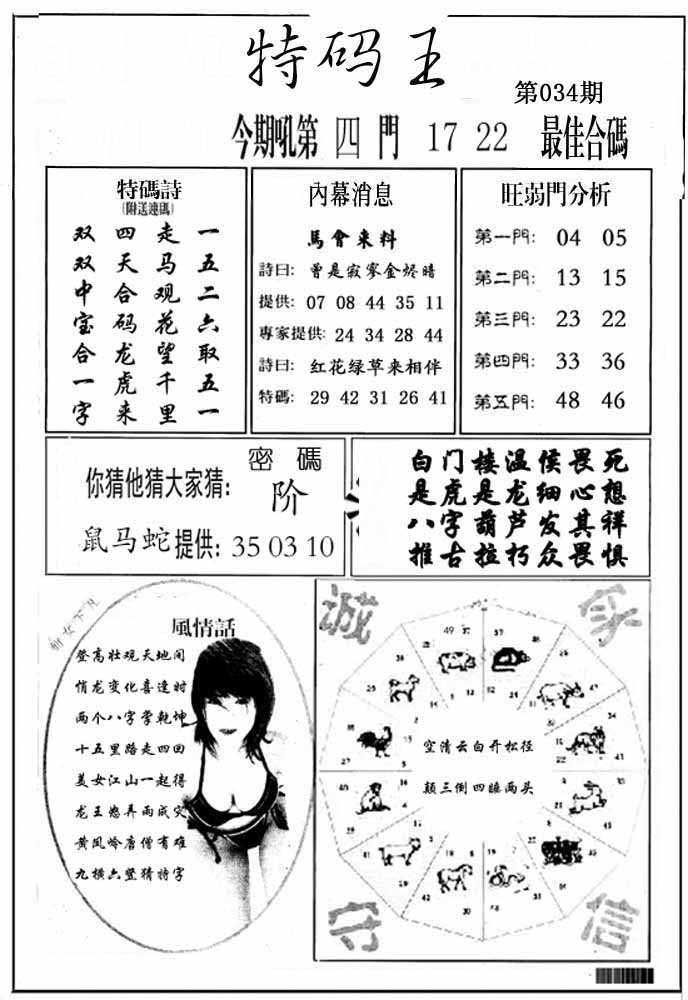 特码王
第034期
今期吼第 四 門 17 22 最佳合碼
特碼詩
(附送連碼)
双四走一
双天马五
中合观二
宝码花六
合龙望取
一虎千五
字来里一
內幕消息
馬會来料
詩曰: 曾是寂寥金烬暗
提供: 07 08 44 35 11
專家提供: 24 34 28 44
詩曰: 红花绿草来相伴
特碼: 29 42 31 26 41
旺弱門分析
第一門: 04 05
第二門: 13 15
第三門: 23 22
第四門: 33 36
第五門: 48 46
密碼
你猜他猜大家猜: 阶
鼠马蛇提供: 35 03 10
白门楼温侯畏死
是虎是龙细心想
八字葫芦发其祥
推古拉朽众畏惧
風情話
登高壮观天地间
悄龙变化喜逢时
两个八字掌乾坤
十五里路走四回
美女江山一起得
龙王愁弄雨成灾
黄风岭唐僧有难
九横六竖猜特字
诚
守
信
空清云白开松径
颠三倒四睡两头